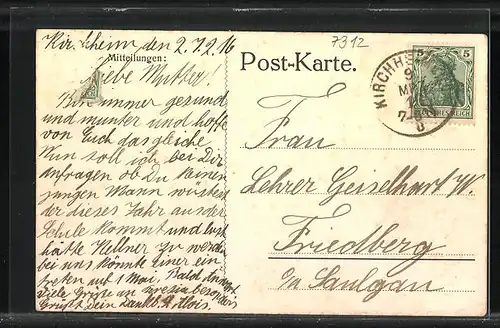 Kirchheim den 2.7.2.16
7312
Mitteilungen:
Post-Karte.
Liebe Mutter!
Bin immer gesund
und munter und hoffe
von Euch das gleiche
Nun soll ich bei Dir
anfragen ob Du keinen
jungen Mann wüsstest
der dieses Jahr aus der
Schule kommt und lust
hätte Kellner zu werden
bei uns könnte einer ein
treten auf 1 Mai. Bald
viele Grüße an
Grüßt dein Alois.
5 5
DEUTSCHES REICH
KIRCHH
Frau
Lehrer Geiselhart W.
Friedberg
Saulgau